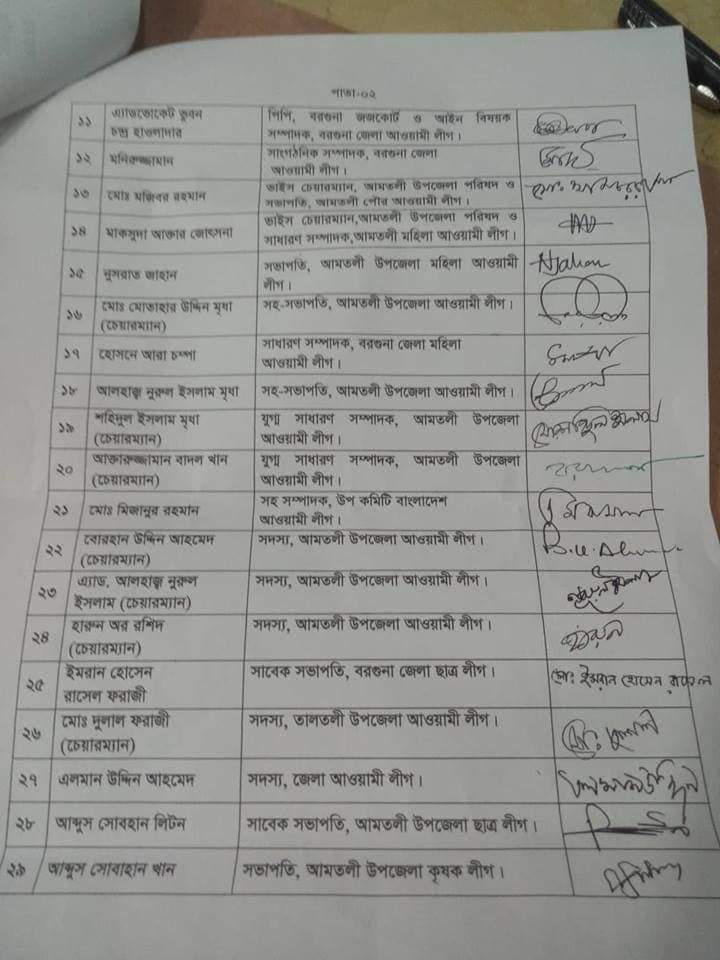 পাতা-০২
১১ এ্যাডভোকেট ভুবন চন্দ্র হাওলাদার পিপি, বরগুনা জজকোর্ট ও আইন বিষয়ক সম্পাদক, বরগুনা জেলা আওয়ামী লীগ।
১২ মনিরুজ্জামান সাংগঠনিক সম্পাদক, বরগুনা জেলা আওয়ামী লীগ।
১৩ মোঃ মজিবর রহমান ভাইস চেয়ারম্যান, আমতলী উপজেলা পরিষদ ও সভাপতি, আমতলী পৌর আওয়ামী লীগ।
১৪ মাকসুদা আক্তার জোৎসনা ভাইস চেয়ারম্যান,আমতলী উপজেলা পরিষদ ও সাধারণ সম্পাদক,আমতলী মহিলা আওয়ামী লীগ।
১৫ নুসরাত জাহান সভাপতি, আমতলী উপজেলা মহিলা আওয়ামী লীগ। NJahan
১৬ মোঃ মোতাহার উদ্দিন মৃধা (চেয়ারম্যান) সহ-সভাপতি, আমতলী উপজেলা আওয়ামী লীগ।
১৭ হোসনে আরা চম্পা সাধারণ সম্পাদক, বরগুনা জেলা মহিলা আওয়ামী লীগ।
১৮ আলহাজ্ব নুরুল ইসলাম মৃধা সহ-সভাপতি, আমতলী উপজেলা আওয়ামী লীগ।
১৯ শহিদুল ইসলাম মৃধা (চেয়ারম্যান) যুগ্ম সাধারণ সম্পাদক, আমতলী উপজেলা আওয়ামী লীগ।
২০ আক্তারুজ্জামান বাদল খান (চেয়ারম্যান) যুগ্ম সাধারণ সম্পাদক, আমতলী উপজেলা আওয়ামী লীগ।
২১ মোঃ মিজানুর রহমান সহ সম্পাদক, উপ কমিটি বাংলাদেশ আওয়ামী লীগ।
২২ বোরহান উদ্দিন আহমেদ (চেয়ারম্যান) সদস্য, আমতলী উপজেলা আওয়ামী লীগ।
২৩ এ্যাড, আলহাজ্ব নুরুল ইসলাম (চেয়ারম্যান) সদস্য, আমতলী উপজেলা আওয়ামী লীগ।
২৪ হারুন অর রশিদ (চেয়ারম্যান) সদস্য, আমতলী উপজেলা আওয়ামী লীগ।
২৫ ইমরান হোসেন রাসেল ফরাজী সাবেক সভাপতি, বরগুনা জেলা ছাত্র লীগ। মোঃ ইমরান হোসেন রাসেল
২৬ মোঃ দুলাল ফরাজী (চেয়ারম্যান) সদস্য, তালতলী উপজেলা আওয়ামী লীগ।
২৭ এলমান উদ্দিন আহমেদ সদস্য, জেলা আওয়ামী লীগ।
২৮ আব্দুস সোবহান লিটন সাবেক সভাপতি, আমতলী উপজেলা ছাত্র লীগ।
২৯ আব্দুস সোবাহান খান সভাপতি, আমতলী উপজেলা কৃষক লীগ।